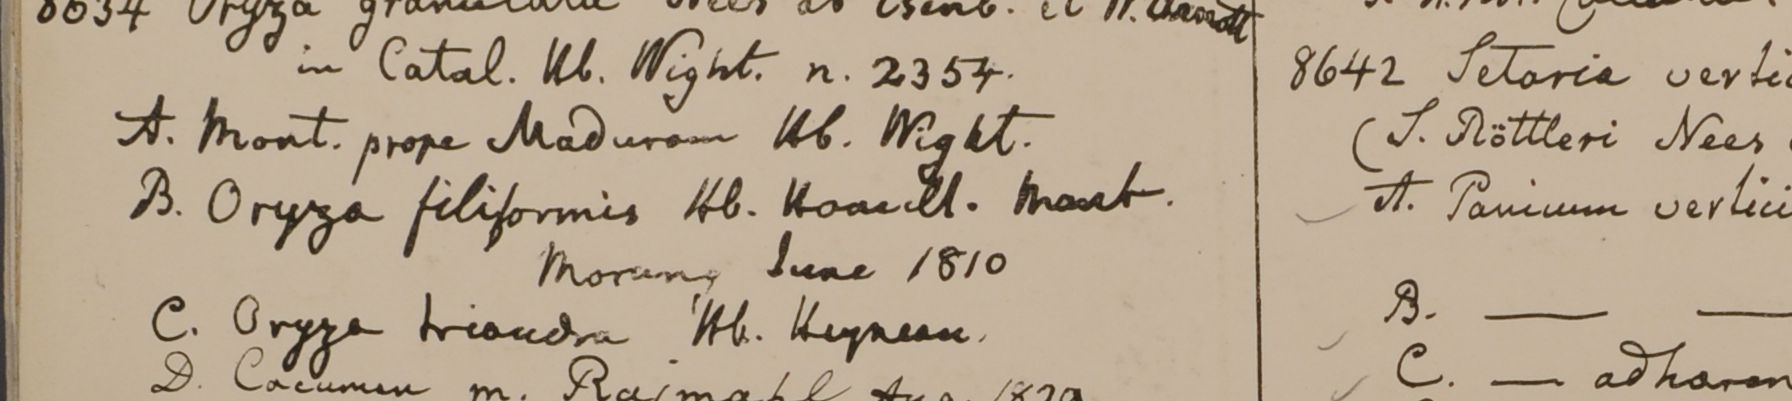 8634 Oryza granulata Nees ab Esenb. et W. Arnott
in Catal. Hb. Wight. n. 2354.
A. Mont. prope Maduram Hb. Wight.
B. Oryza filiformis Hb. Hamilt. Mont.
Morung June 1810
C. Oryza triandra Hb. Heynean.
D. Cacumen m. Rajmahl Aug. 1820
8642 Setaria vertic
(S. Röttleri Nees
A. Panicum vertici
B. — —
C. — adhaeren